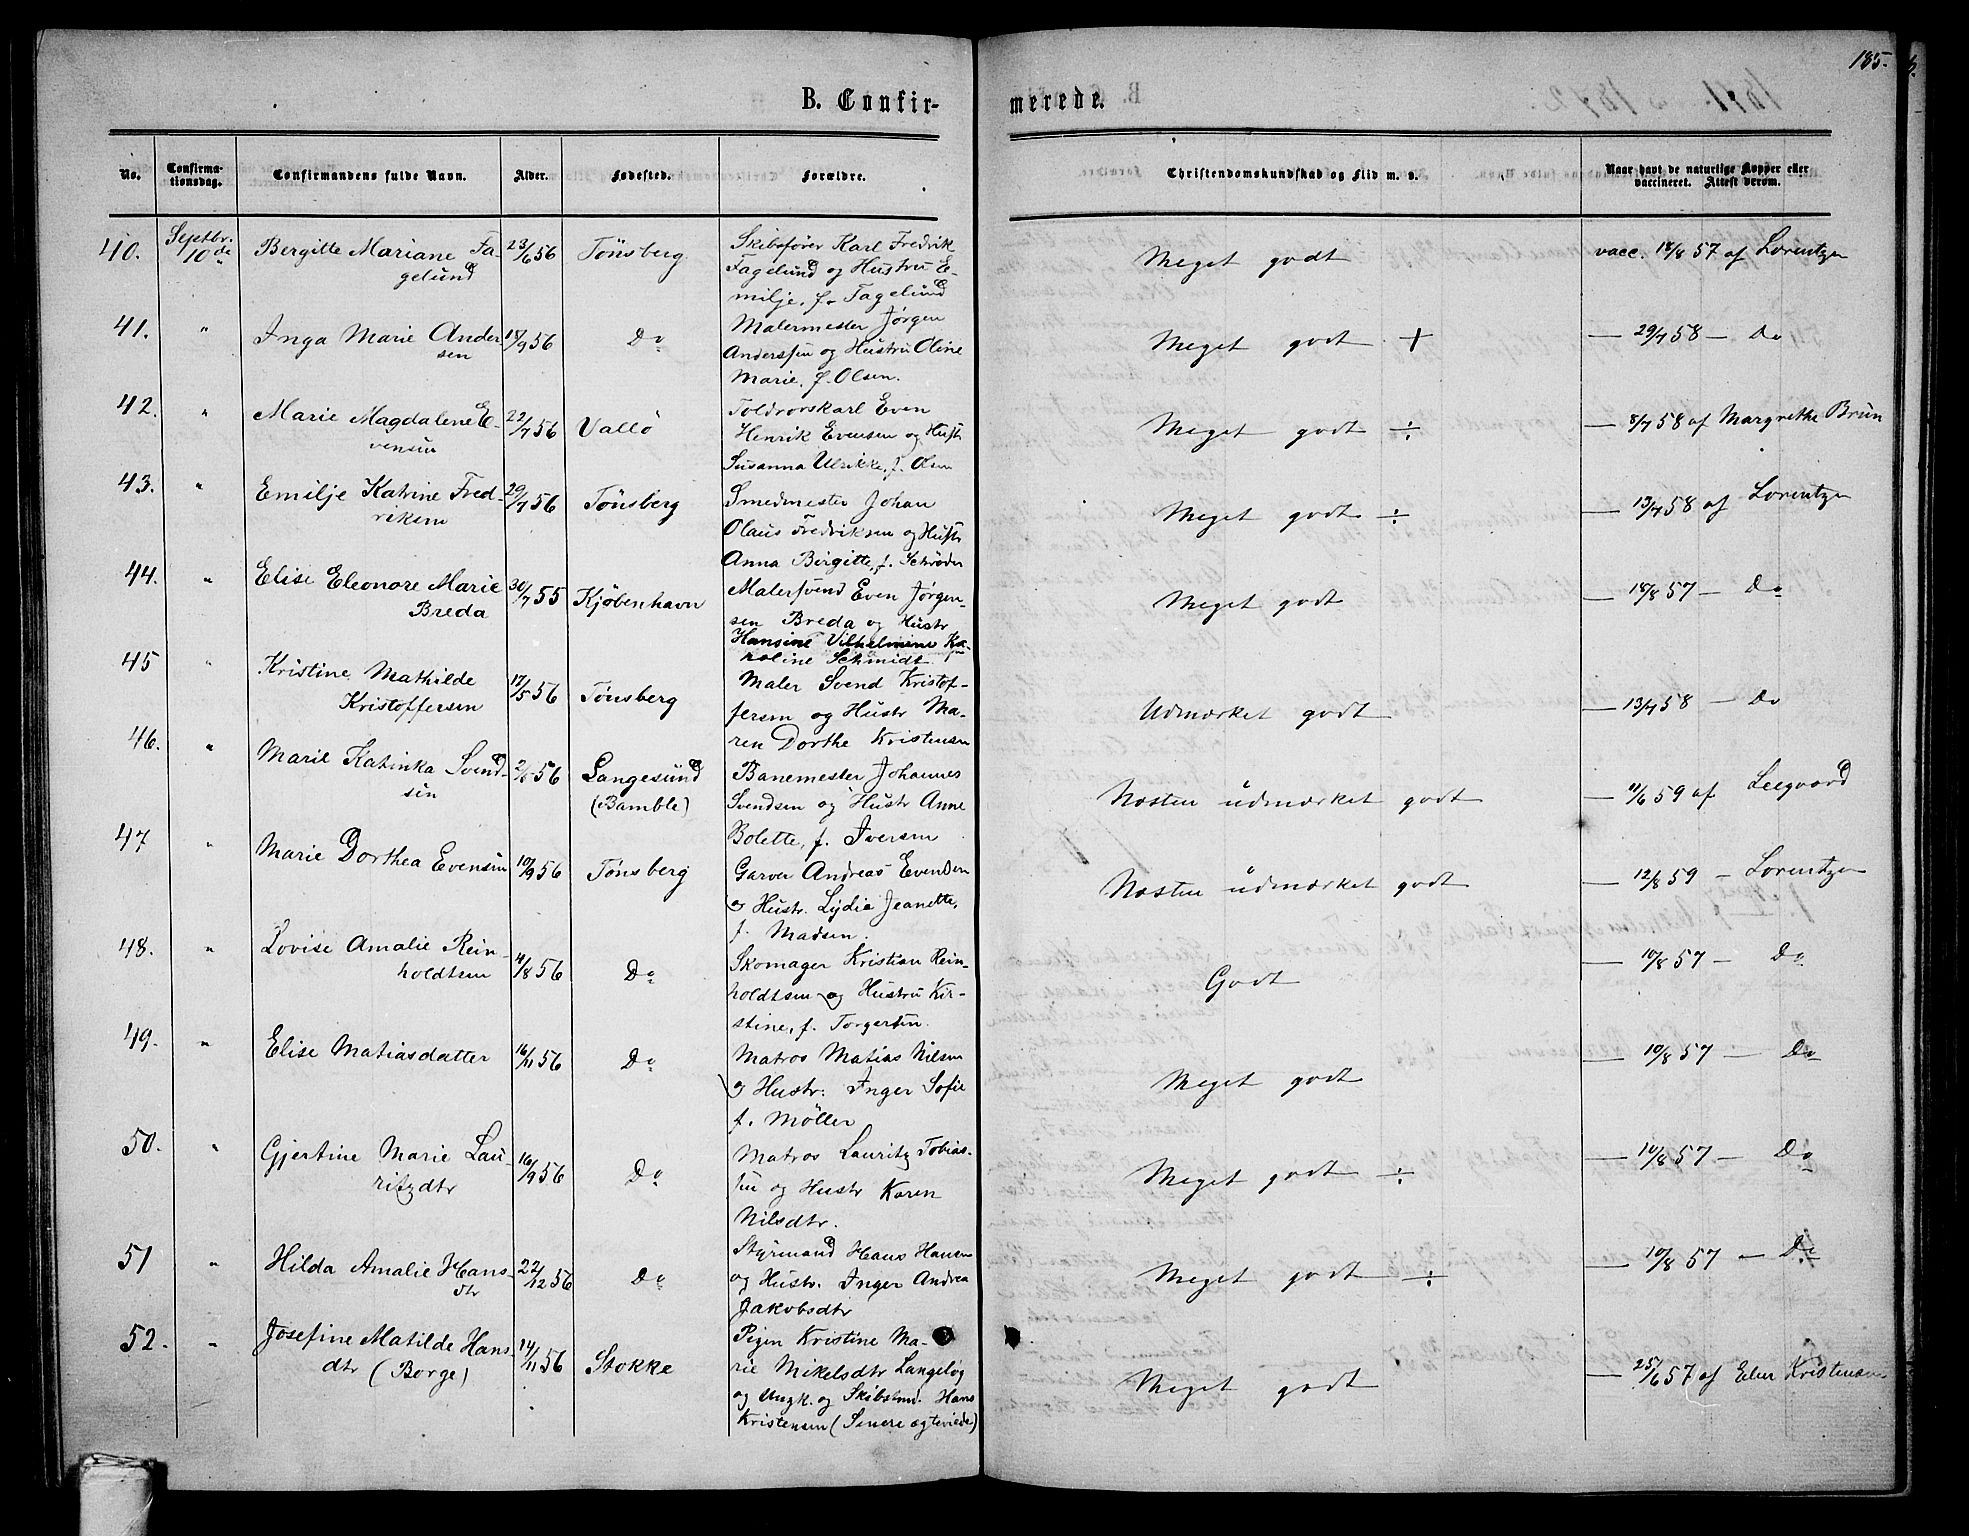 185.
B. Confir-
merede.
No.
Confirma-
tionsdag.
Confirmandens fulde Navn.
Alder.
Fødested.
Forældre.
Christendomskundskab og Flid m. v.
Naar havt de naturlige Kopper eller
vaccineret. Attest derom.
40. Septbr. 10de Bergitte Mariane Fa- 23/6 56 Tönsberg Skibsfører Karl Fredrik Meget godt vacc. 18/8 57 af Lorentzen
gelund Fagelund og Hustru E-
milje, f. Fagelund
41. " Inga Marie Ander 18/9 56 Do Malermester Jörgen Meget godt + — 29/7 58 — Do
sen Anderssen og Hustru Oline
Marie, f. Olsen.
42. " Marie Magdalene E- 22/7 56 Vallö Toldrorskarl Even Meget godt ÷ — 8/7 58 af Margrethe Brun
vensen Henrik Evensen og Hustr
Susanna Ulrikke, f. Olsen
43. " Emilje Katrine Fred- 29/7 56 Tönsberg Smedmester Johan Meget godt ÷ — 13/7 58 af Lorentzen
riksen Olaus Fredriksen og Hustr
Anna Birgitte, f. Schrøder
44. " Elise Eleonore Marie 30/7 55 Kjöbenhavn Malersvend Even Jörgen- Meget godt — 18/8 57 — Do
Breda sen Breda og Hustr
Hansine Vilhelmine Ka-
roline Schmidt
45 " Kristine Mathilde 17/5 56 Tönsberg Maler Svend Kristof- Udmærket godt — 13/7 58 — Do
Kristoffersen fersen og Hustr Ma-
ren Dorthe Kristensen
46. " Marie Katinka Svend- 56 Langesund Banemester Johannes Næsten udmærket godt — 11/6 59 af Leegaard
sen (Bamble) Svendsen og Hustr Anne
Bolette, f. Iversen
47 " Marie Dorthea Evensen 10/9 56 Tönsberg Garver Andreas Evensen Næsten udmærket godt — 12/8 59 — Lorentzen
og Hustr. Lydie Jeanette,
f. Madsen.
48. " Lovise Amalie Rein- 4/8 56 Do Skomager Kristian Rein- Godt — 10/8 57 — Do
holdtsen holdtsen og Hustru Kir-
stine, f. Torgersen.
49. " Elise Matiasdatter 16/11 56 Do Matros Matias Nilsen Meget godt — 10/8 57 — Do
og Hustr: Inger Sofie
f. Möller
50. " Gjertine Marie Lau- 16/9 56 Do Matros Lauritz Tobias- Meget godt ÷ — 10/8 57 — Do
ritzdtr sen og Hustr Karen
Nilsdtr.
51 " Hilda Amalie Hans- 22/12 56 Do Styrmand Hans Hansen Meget godt ÷ — 10/8 57 — Do
dtr og Hustr. Inger Andrea
Jakobsdtr
52. " Josefine Matilde Hans- 14/11 56 Stokke Pigen Kristine Ma- Meget godt — 25/6 57 af Kristensen
dtr (Borge) rie Mikelsdtr Langelög
og Ungk. og Skibstmd. Hans
Kristensen (Senere ægteviede)